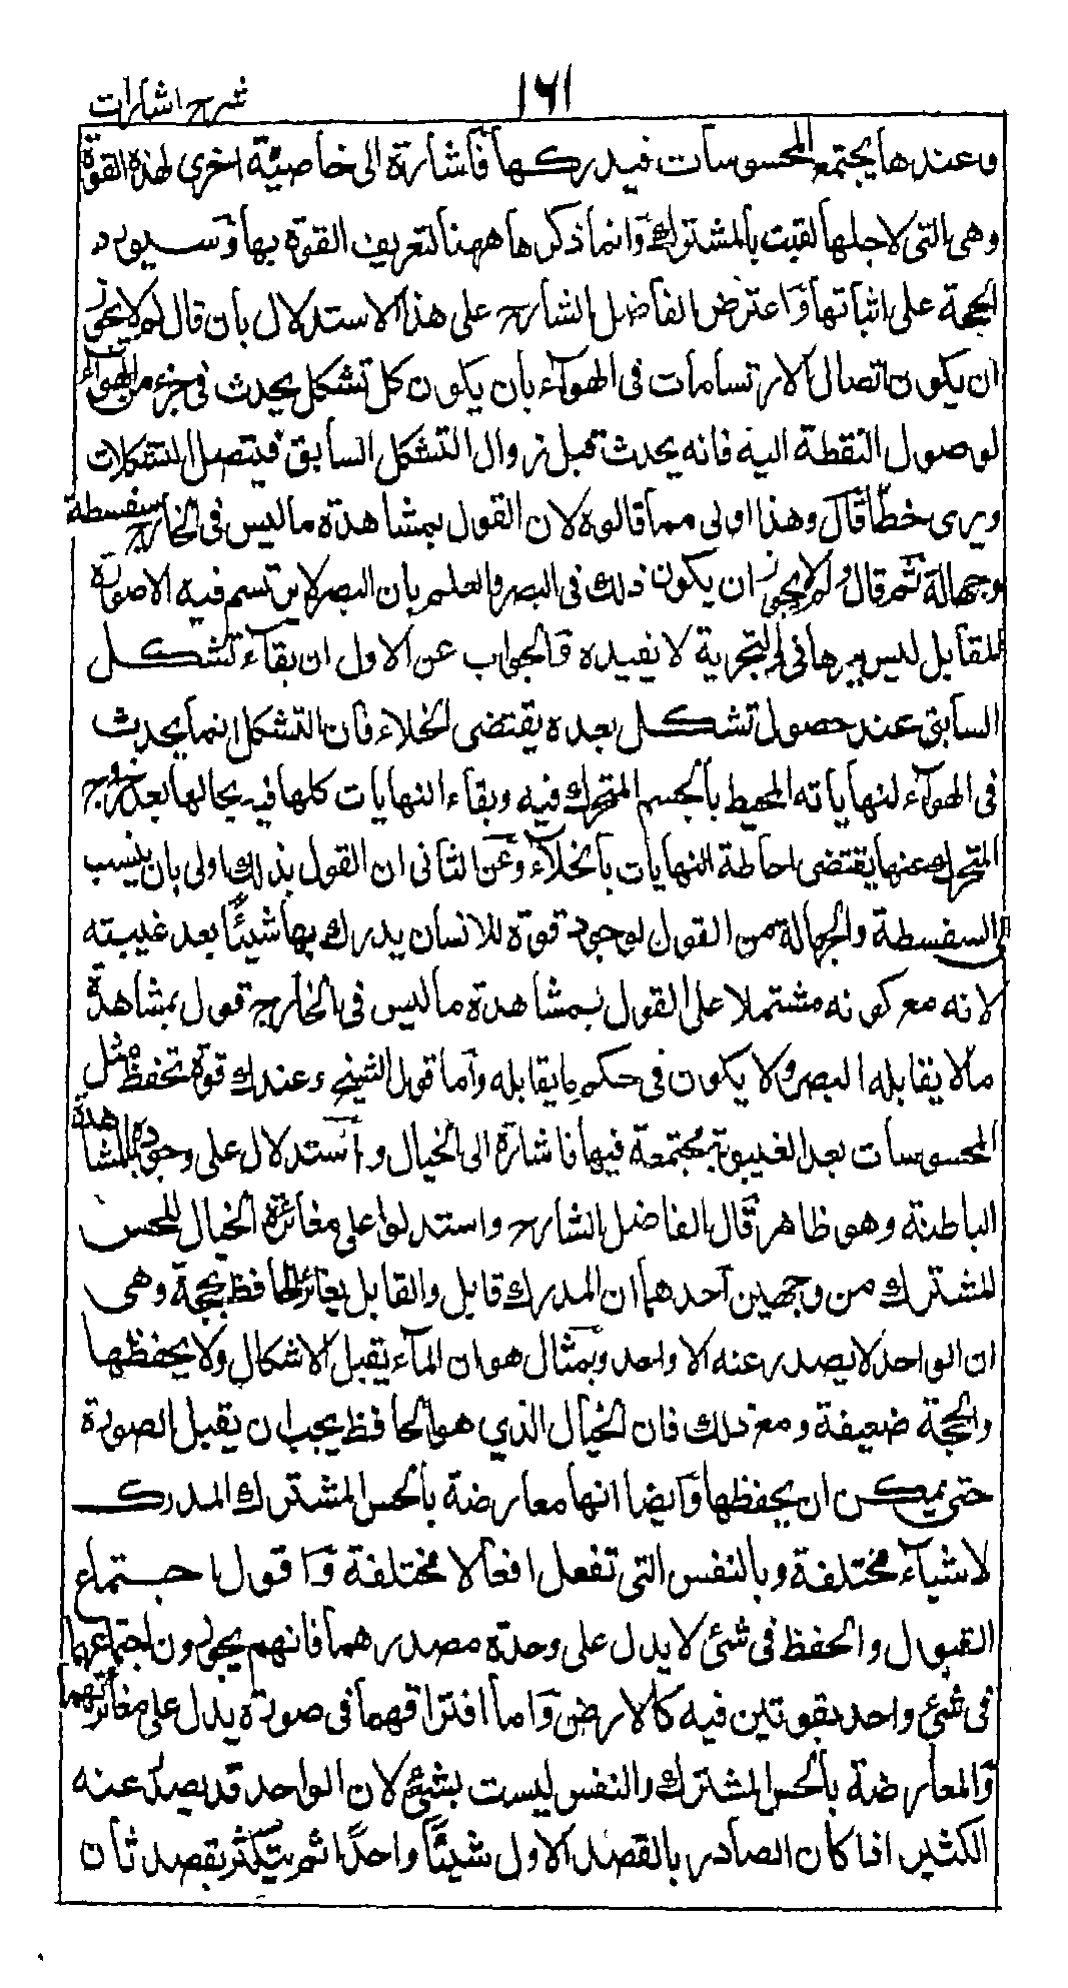 ١٦١
شرح اشارات
وعندها يجتمع المحسوسات فيدركها فاشارة الى خاصية اخرى لهذه القوة
وهى التى لاجلها لقبت بالمشترك وانما ذكرها ههنا لتعريف القوة بها وسيورد
الحجة على اثباتها واعترض الفاضل الشارح على هذا الاستدلال بان قال لم لا يجوز
ان يكون اتصال الارتسامات فى الهوآء بان يكون كل تشكل يحدث فى جزء من الهوآء
لوصول النقطة اليه فانه يحدث قبل زوال التشكل السابق فيتصل التشكلات
ويرى خطا قال وهذا اولى مما قالوه لان القول بمشاهدة ما ليس فى الخارج سفسطة
وجهالة ثم قال ولم لا يجوز ان يكون ذلك فى البصر والعلم بان البصر لا يرتسم فيه الا صورة
المقابل ليس برهانى اذ التجربة لا تفيده والجواب عن الاول ان بقآء تشكل
السابق عند حصول تشكل بعده يقتضى الخلاء فان التشكل انما يحدث
فى الهوآء لنهاياته المحيط بالجسم المتحرك فيه وبقاء النهايات كلها فيه بحالها بعد خروج
المتحرك عنها يقتضى احاطة النهايات بالخلآء وعن الثانى ان القول بذلك اولى بان ينسب
الى السفسطة والجهالة من القول لوجود قوة للانسان يدرك بها شيئًا بعد غيبته
لانه مع كونه مشتملا على القول بمشاهدة ما ليس فى الخارج قول بمشاهدة
ما لا يقابله البصر ولا يكون فى حكم ما يقابله وآما قول الشيخ وعندك قوة تحفظ مثل
المحسوسات بعد الغيبوبة مجتمعة فيها فاشارة الى الخيال واستدلال على وجوده بالمشاهدة
الباطنة وهو ظاهر قال الفاضل الشارح واستدلوا على مغائرة الخيال للحس
المشترك من وجهين احدهما ان المدرك قابل والقابل يغائر الحافظ بحجة وهى
ان الواحد لا يصدر عنه الا واحد وبمثال هو ان المآء يقبل الاشكال ولا يحفظها
والحجة ضعيفة ومع ذلك فان الخيال الذي هو الحافظ يجب ان يقبل الصورة
حتى يمكن ان يحفظها وايضا انها معارضة بالحس المشترك المدرك
لاشيآء مختلفة وبالنفس التى تفعل افعالا مختلفة واقول اجتماع
القبول والحفظ فى شئ لا يدل على وحدة مصدرهما فانهم يجوزون اجتماعهما
فى شئ واحد بقوتين فيه كالارض واما افتراقهما فى صورة يدل على مغائرتهما
والمعارضة بالحس المشترك والنفس ليست بشئ لان الواحد قد يصدر عنه
الكثير اذا كان الصادر بالقصد الاول شيئًا واحدًا ثم يتكثر بقصد ثان